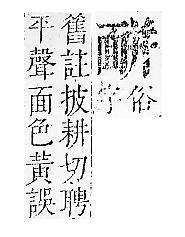 俗
字
舊註披耕切聘
平聲面色黃誤